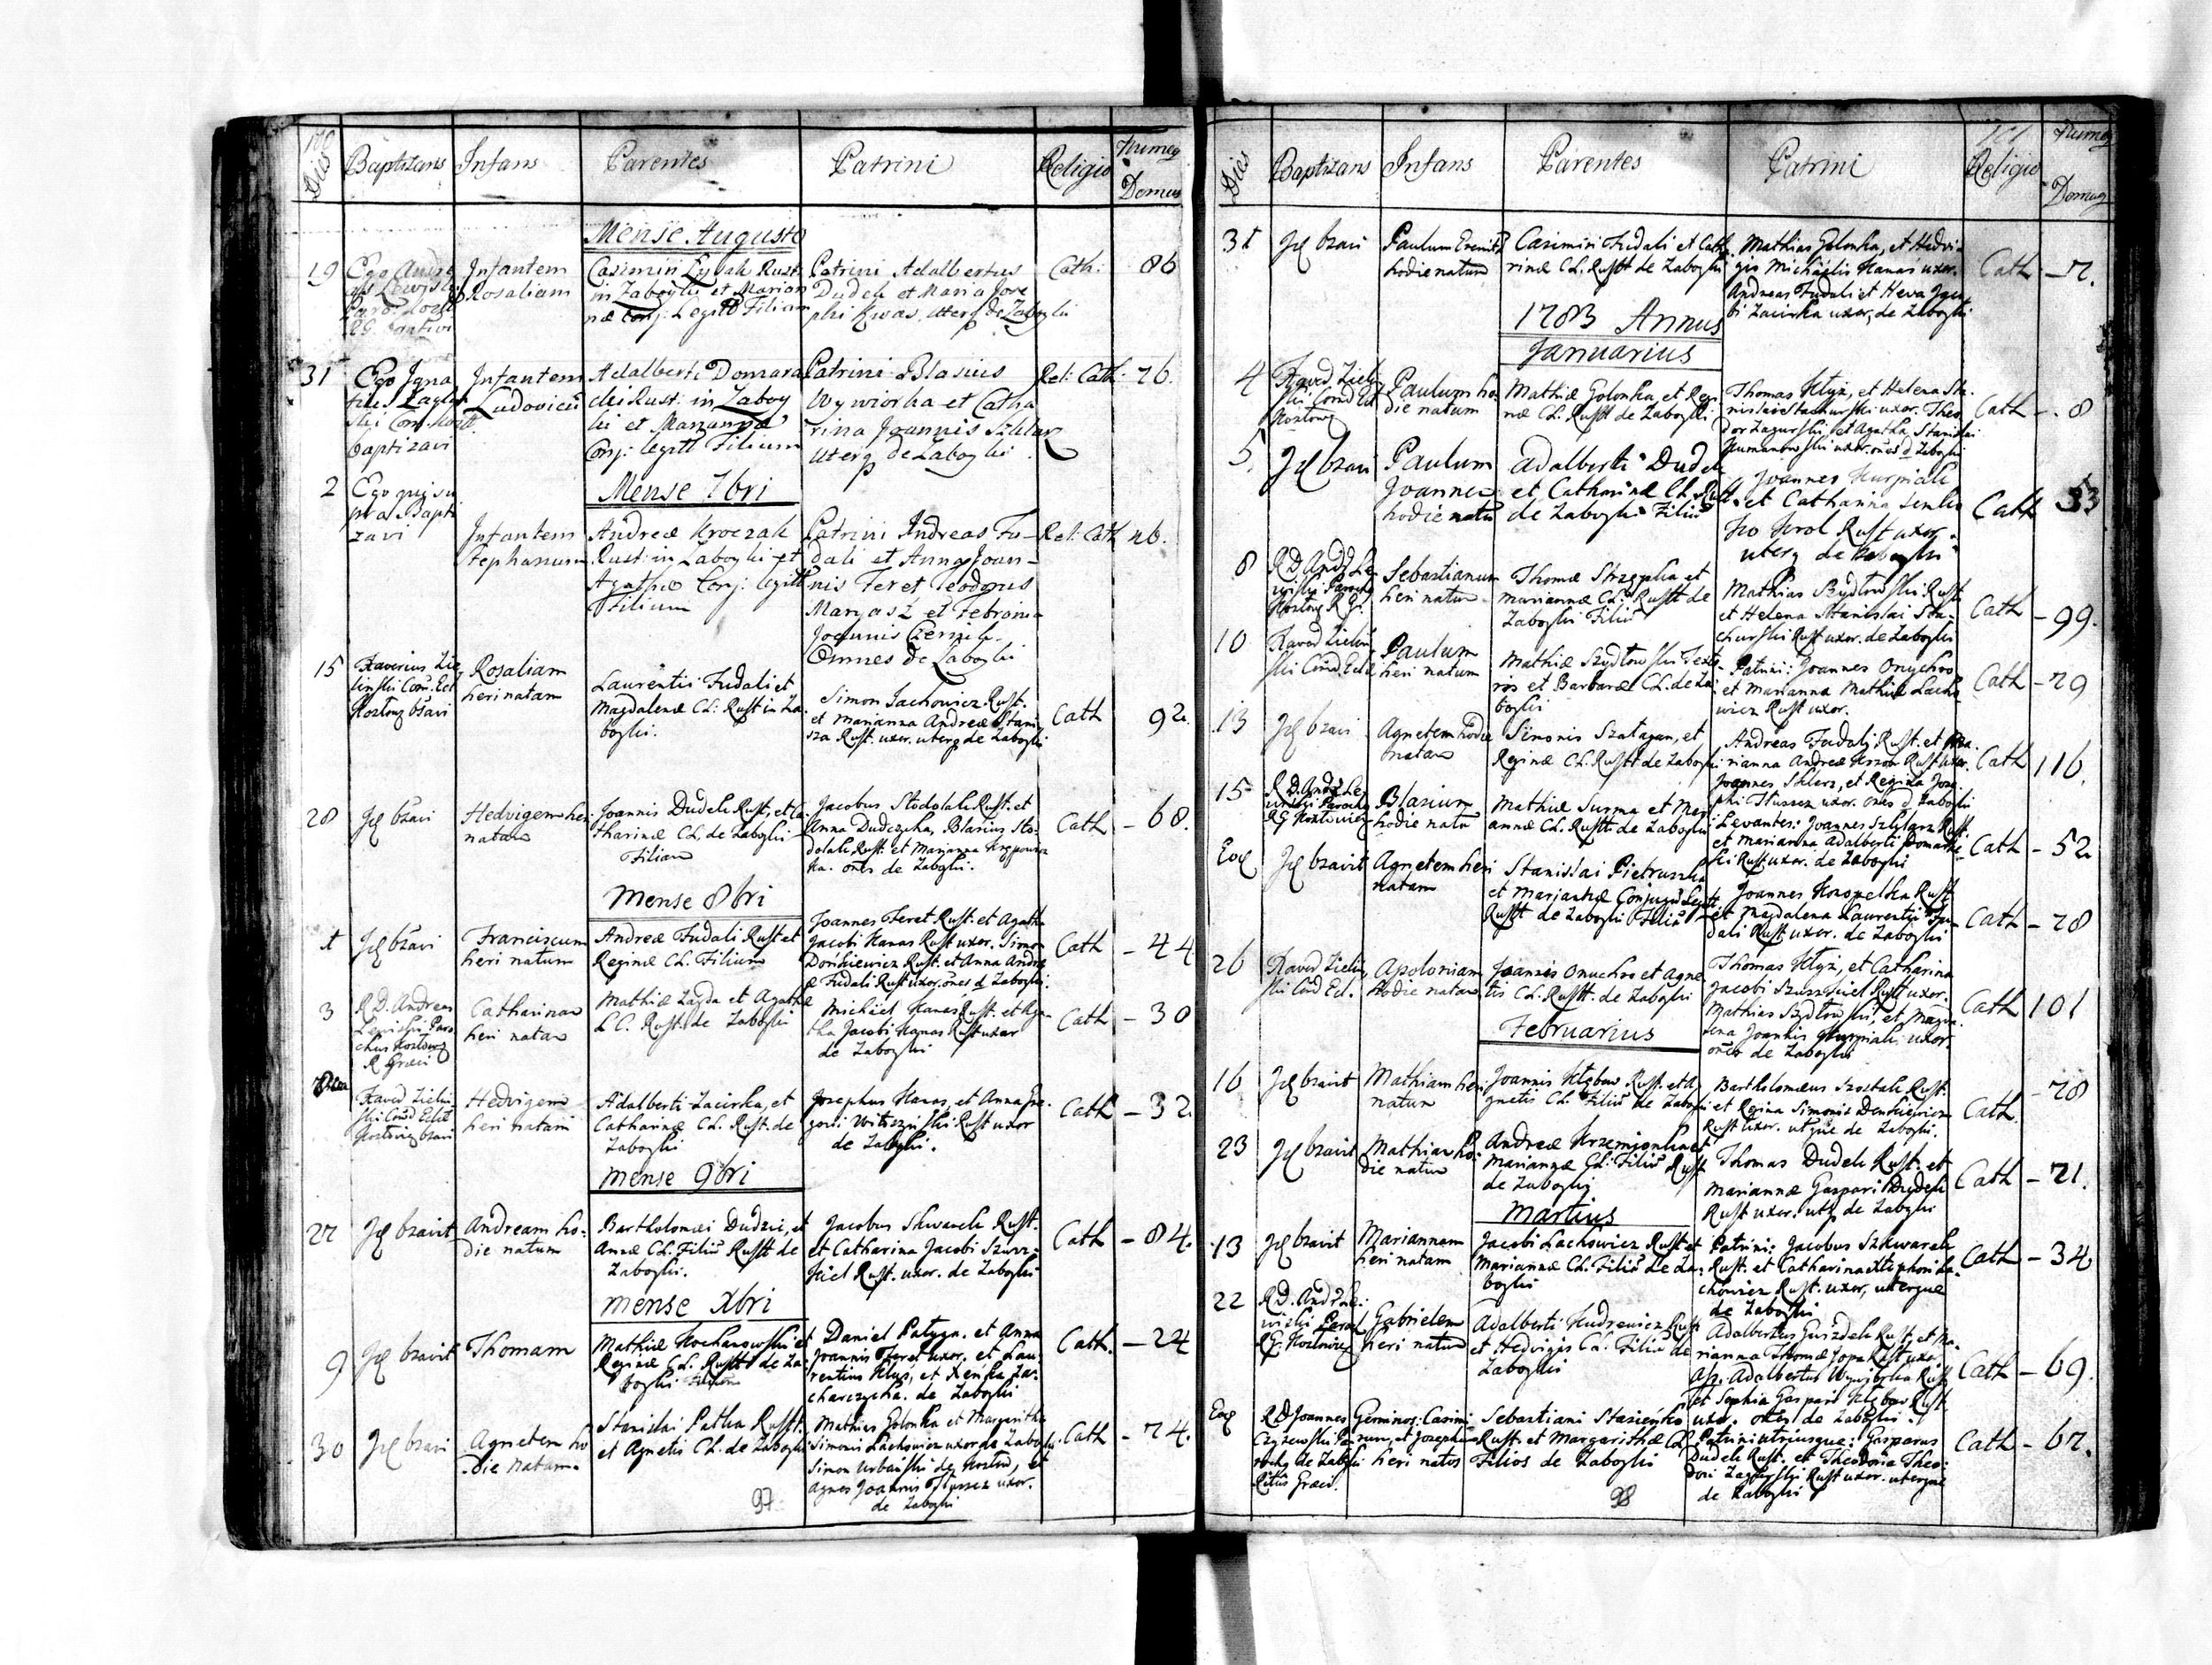 Dies Baptizans Infans Parentes Patrini Religio Numeq Domus
Mense Augusto
19 Ego Andr
Infantem
Rosaliam
Casimiri Lysak Rust.
in Zaboglii et Marian
næ Conj: Legitt Filiam
Patrini Adalbertus
Dudek et Maria Jose
phi Kwas, uterq de Zaboglii
Cath: 86
31 Ego Igna
baptizavi
Infantem
Ludovicū
Adalberti Domara
cki Rust: in Zabog
lii et Mariannæ
Conj: legitt Filium
Patrini Blasius
Wywiorka et Catha
rina Joannis Szklar
uterq de Zaboglii
Rel: Cath 76.
Mense 7bri
2 Ego qui su
pra Bapti
zavi
Infantem
Stephanum
Andreæ Kroczak
Rust: in Zaboglii et
Agathæ Conj: legitt
Filium
Patrini Andreas Fu-
dali et Anna Joan-
nis Feret Teodorus
Maryasz et Febronia
Joannis Czernik
Omnes de Zaboglii
Rel: Cath 46.
15 Xaverius Zie
linski Com. Ecl
Rosaliam
heri natam
Laurentii Fudali et
Magdalenæ CL: Rust in Za
boglii.
Simon Lachowicz Rust.
et Marianna Andreæ Stani
sza Rust. uxor. uterq de Zaboglii
Cath 92.
28 Id bzavi
Hedvigem heri
natam
Joannis Dudek Rust, et Ca
tharinæ CL. de Zaboglii
Filiam
Jacobus Stodolak Rust. et
Anna Dudczycha, Blasius Sto-
dolak Rust. et Marianna
ka. omēs de Zaboglii.
Cath - 68.
Mense 8bri
1 Id bzavi
Franciscum
heri natum
Andreæ Fudali Rust et
Reginæ CL. Filium
Joannes Feret Rust. et Agatha
Jacobi Kanas Rust uxor. Simon
Dońkiewicz Rust. et Anna Andre
æ Fudali Rust uxor. omēs d Zaboglii.
Cath - 44
3 R D. Andreas
Lewicki Paro
chus
R. Græci
Catharinam
heri natam
Mathiæ Zayda et Agathæ
L C. Rust. de Zaboglii
Michael Kanas Rust. et Aga-
tha Jacobi Kanas Rust uxor
de Zaboglii
Cath - 30
Xaver Zielin
Hedvigem
heri natam
Adalberti Zacirka, et
Catharinæ CL. Rust. de
Zaboglii
Josephus Kanas, et Anna Gre
gorii Rust uxor
de Zaboglii.
Cath - 32
Mense 9bri
27 Id bzavit
Andream ho-
die natum
Bartholomæi Dudzic, et
Annæ CL. Filiū Rustt de
Zaboglii.
Jacobus Skwarek Rust.
et Catharina Jacobi Szusz-
kiel Rust. uxor. de Zaboglii
Cath - 84.
Mense Xbri
9 Id bzavit
Thomam
Mathiæ Kochanowski et
Reginæ CL. Rustt de Za
boglii
Daniel Patyga. et Anna
Joannis Feret uxor. et Lau
rentius Klus, et Xenka Za-
charczycha. de Zaboglii
Cath. - 24
30 Id bzavi
Agnetem ho
die natam
Stanislai Patka Rustt.
et Agnetis CL. de Zaboglii
Mathias Golonka et Margaritha
Simonis Lachowicz uxor de Zaboglii.
Simon Urbański de et
Agnes Joannis uxor.
de Zaboglii
Cath - 74.
97
Dies Baptizans Infans Parentes Patrini Religio Numeq Domuq
31 Id bzavi
Paulum Eremitā
hodie natum
Casimiri Fudali et Catha
rinæ CL. Rustt de Zaboglii
Mathias Golonka, et Hedvi-
gis Michaelis Kanas uxor.
Andreas Fudali et Heva Jaco
bi Zacirka uxor, de Zaboglii
Cath - 7.
1783 Annus
Januarius
4 Xaver. Zielin
Paulum ho-
die natum
Mathiæ Golonka, et Regi
næ CL. Rustt de Zaboglii
Thomas Klyz, et Helena Sta-
nislai Stachurski uxor. Theo
dor Zagurski, et Agatha Stanislai
uxor. omēs d Zaboglii
Cath - 8
5. Id bzavi
Paulum
Joannem
hodie natū
Adalberti Dudek
et Catharinæ CL Rustt.
de Zaboglii Filiū
Joannes Kurpiak
et Catharina
Krol Rust uxor.
uterq de Zaboglii
Cath 53
8 R D Andr Le
wicki Paroch
Sebastianum
heri natum
Thomæ Strzępka et
Mariannæ CL. Rustt de
Zaboglii Filiū
Mathias Szydłowski Rust
et Helena Stanislai Sta-
churski Rust uxor. de Zaboglii
Cath - 99.
10 Xaver Zielin
ski Comd Ecl
Paulum
heri natum
Mathiæ Szydłowski Texto
ris et Barbaræ CL. de Za
boglii
Patrini: Joannes Onychoo
et Marianna Mathiæ Lacho
wicz Rust uxor.
Cath - 29
13 Id bzavi
Agnetem hodie
natam
Simonis Szatagan, et
Reginæ CL. Rustt de Zaboglii
Andreas Fudali Rust. et Ma
rianna Andreæ Rust uxor.
Joannes Sklarz, et Regina Jose
phi uxor. omēs d Zaboglii
Cath 116.
15 R D. Andr Le
wicki Paroch
Blasium
hodie natū
Mathiæ Surma et Mari
annæ CL. Rustt de Zaboglii
Levantes: Joannes Szklarz Rust.
et Marianna Adalberti Domarac
ki Rust uxor. de Zaboglii
Cath - 52
Eoq Id bzavit
Agnetem heri
natam
Stanislai Pietruszka
et Mariannæ Conjugū Legitt
Rustt de Zaboglii Filiā
Joannes Rust
et Magdalena Laurentii Fu-
dali Rust uxor. de Zaboglii
Cath - 28
26 Xaver Zielin
ski Comd Ecl.
Apoloniam
hodie natam
Joannis Onuchoo et Agne
tis CL. Rustt. de Zaboglii
Thomas Klyz, et Catharina
Jacobi Szuszkiel Rust uxor.
Mathias Szydłowski, et Magda
lena Joannis Kurpiak uxor.
omēs de Zaboglii
Cath 101
Februarius
16 Id bzavit
Mathiam heri
natum
Joannis Klębow Rust. et A
gnetis CL. Filiū de Zaboglii
Bartholomæus Szostak Rust.
et Regina Simonis Denkiewicz
Rust uxor. utque de Zaboglii.
Cath. - 28
23 Id bzavit
Mathiam ho-
die natum
Andreæ Krzemionka et
Mariannæ CL: Filiū Rust
de Zaboglii
Thomas Dudek Rust. et
Mariannæ Gaspari Dudek
Rust uxor. utq de Zaboglii
Cath - 21.
Martius
13 Id bzavit
Mariannam
heri natam
Jacobi Lachowicz Rust et
Mariannæ CL. Filiā de Za-
boglii
Patrini: Jacobus Szkwarek
Rust. et Catharina La-
chowicz Rust. uxor, uterque
de Zaboglii
Cath - 34
22 R D. Andr Le
wicki Paroch
Gabrielem
heri natum
Adalberti Kudrewicz Rust
et Hedvigis CL. Filiū de
Zaboglii
Adalbertus Gwizdek Rust. et Ma
rianna Thomæ Zopa Rust uxor.
As. Adalbertus Wywiorka Rust
et Sophia Gaspari Klębow Rust
uxor. omēs de Zaboglii.
Cath - 69.
Eoq R D Joannes
Czyżewski Pa
rochq de Zaboglii
Ritūs Græci.
Geminos: Casimi
rum, et Josephum
heri natos
Sebastiani Stasieńko
Rust. et Margarithæ CL
Filios de Zaboglii
Patrini utriusque: Gasparus
Dudek Rust. et Theodoria Theo
dori Zagurski Rust uxor. uterque
de Zaboglii
Cath - 67.
98